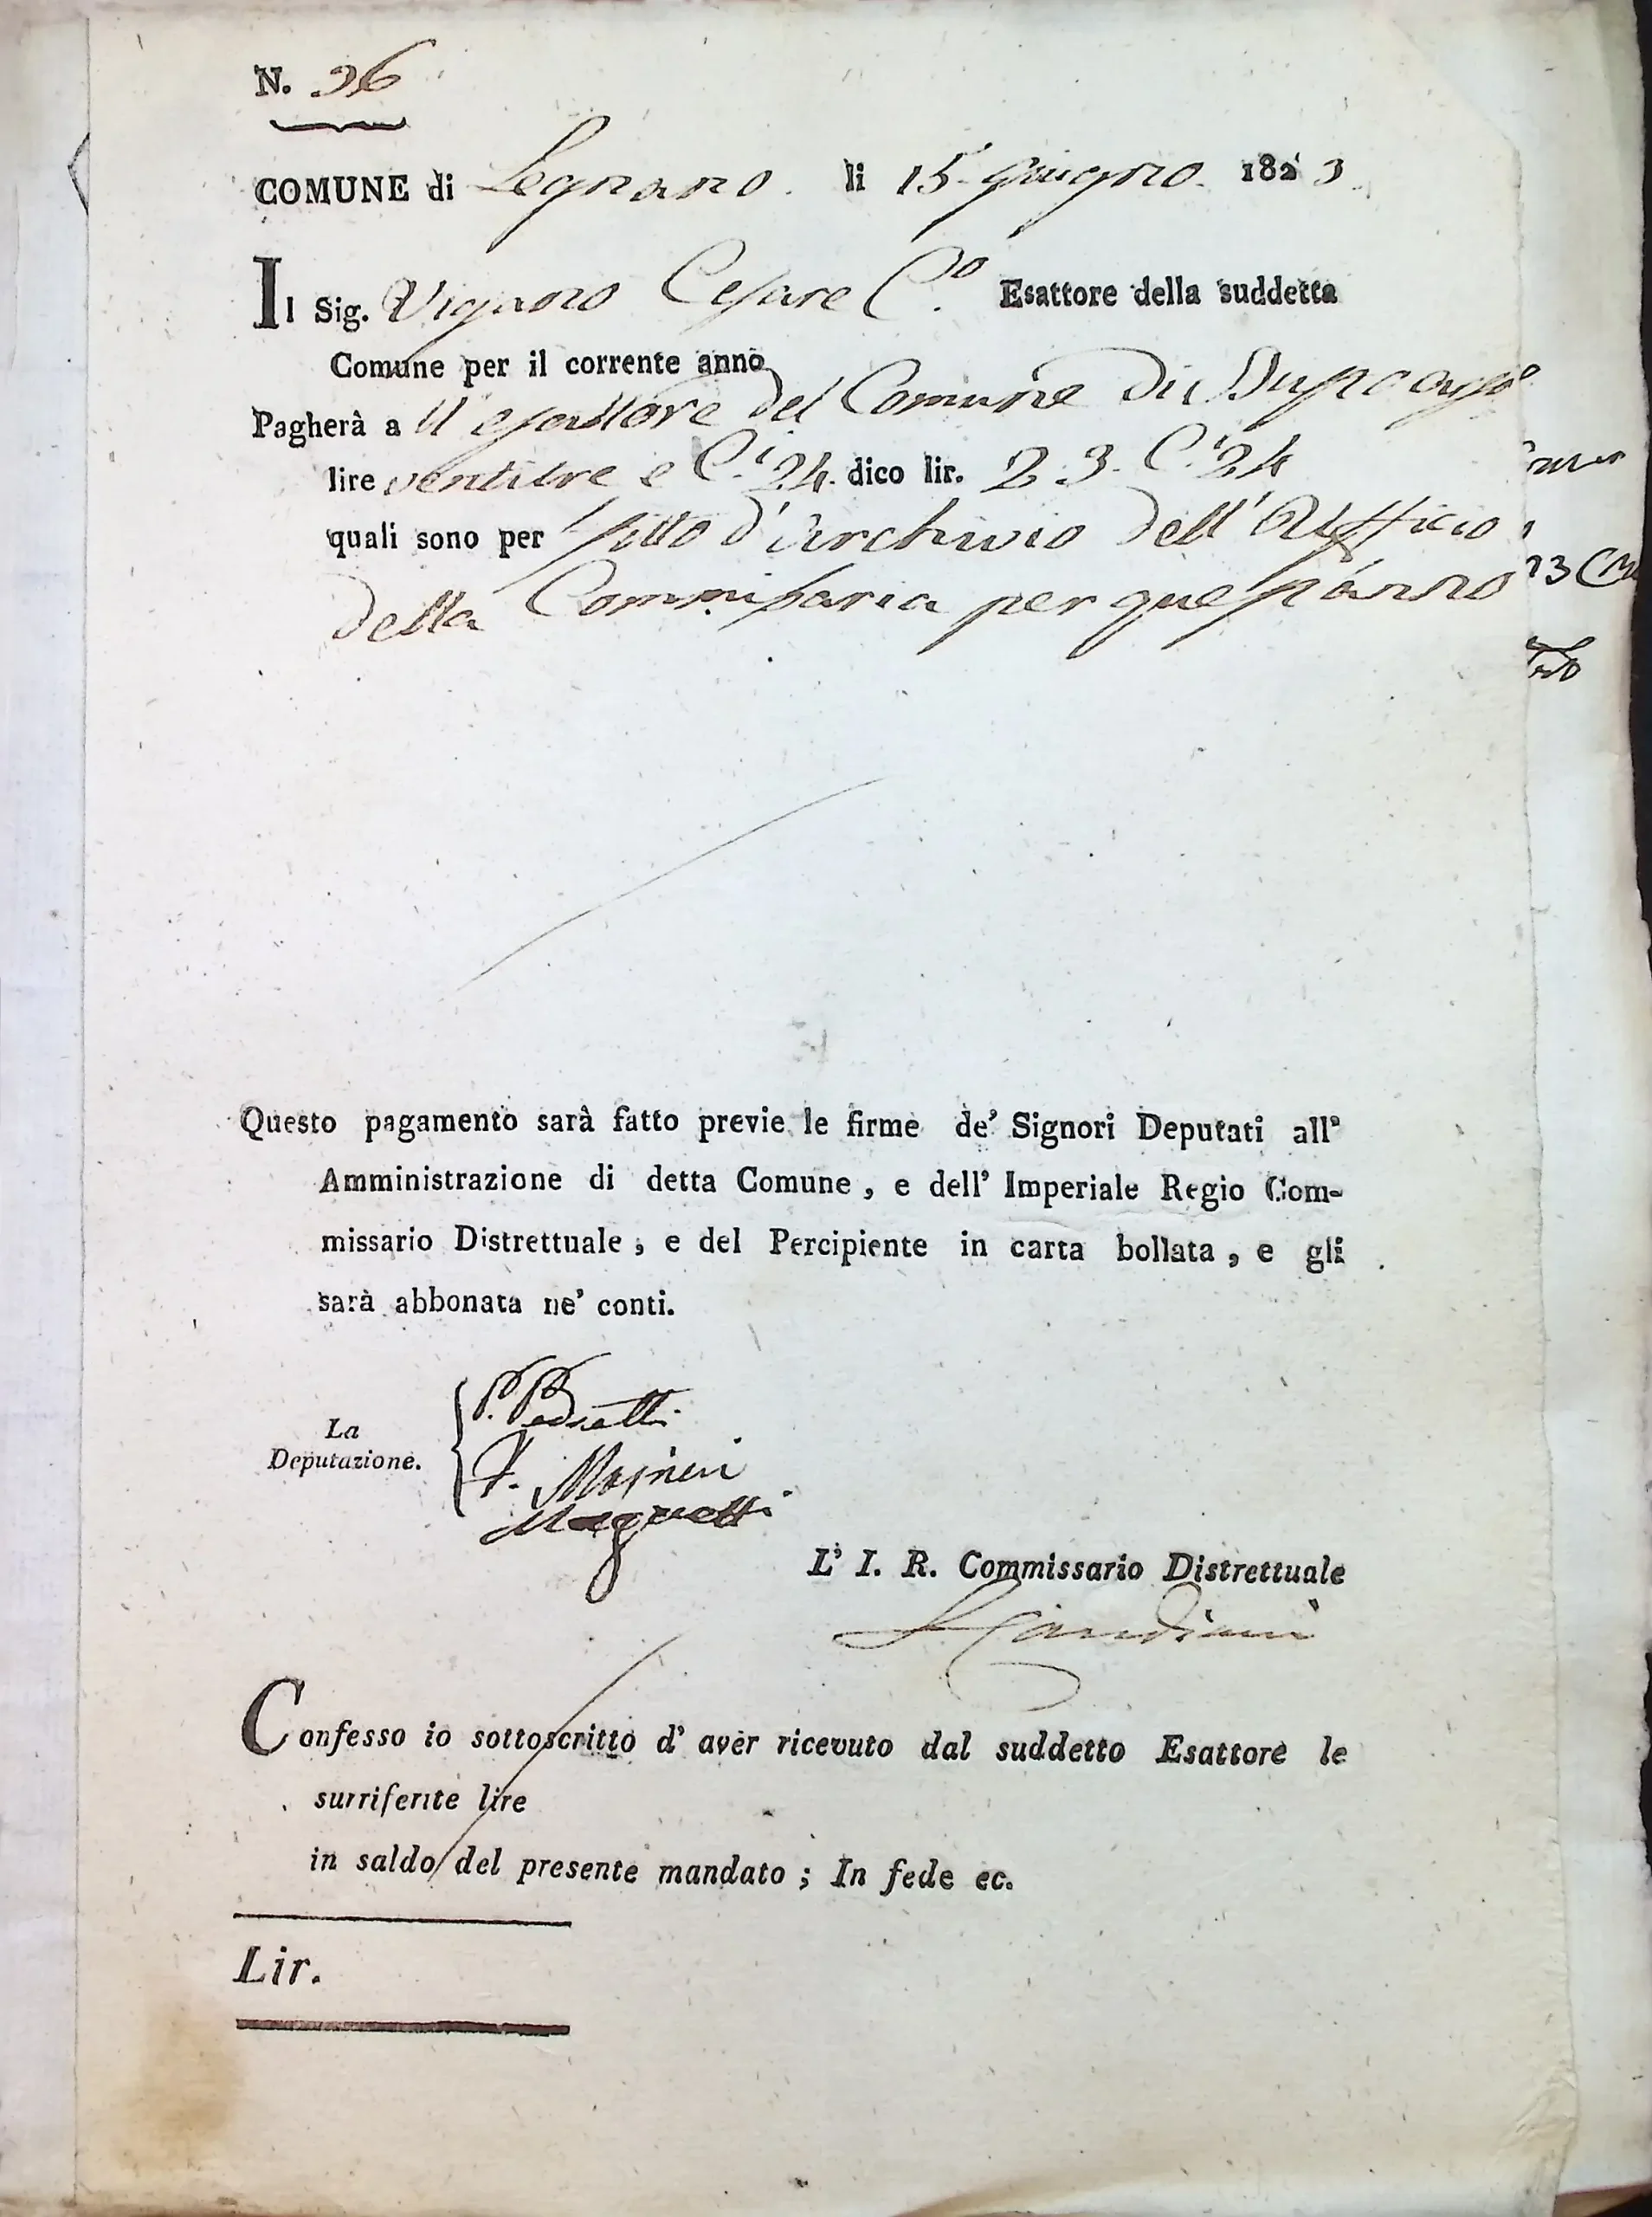 N. 36
COMUNE di Legnano. li 15. giugno. 1823
Il Sig. Viganò Cesare C.º Esattore della suddetta
Comune per il corrente anno
Pagherà a ll'esattore del Comune di
lire ventitre e C.i 24. dico lir. 23. C.i 24
quali sono per fitto d'archivio dell'Ufficio
della Commissaria per quest'anno
Questo pagamento sarà fatto previe le firme de' Signori Deputati all'
Amministrazione di detta Comune, e dell' Imperiale Regio Com-
missario Distrettuale, e del Percipiente in carta bollata, e gli
sarà abbonata ne' conti.
La
Deputazione.
L' I. R. Commissario Distrettuale
Confesso io sottoscritto d' aver ricevuto dal suddetto Esattore le
surriferite lire
in saldo del presente mandato; In fede ec.
Lir.